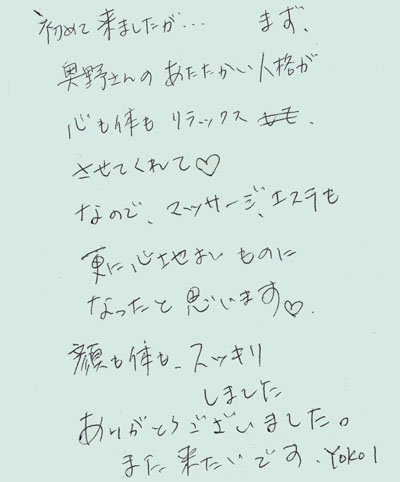 初めて来ましたが... まず、
奥野さんのあたたかい人格が
心も体もリラックス
させてくれて♡
なので、マッサージ、エステも
更に心地よいものに
なったと思います♡.
顔も体も、スッキリ
しました
ありがとうございました。
また来たいです. YOKO I